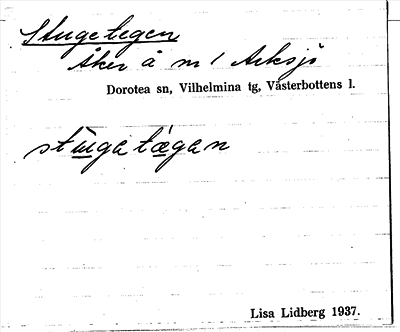 Stugetegen
Åker å n<sup>r</sup> 1 Arksjö
Dorotea sn, Vilhelmina tg, Västerbottens l.
stùga tǽgan
Lisa Lidberg 1937.